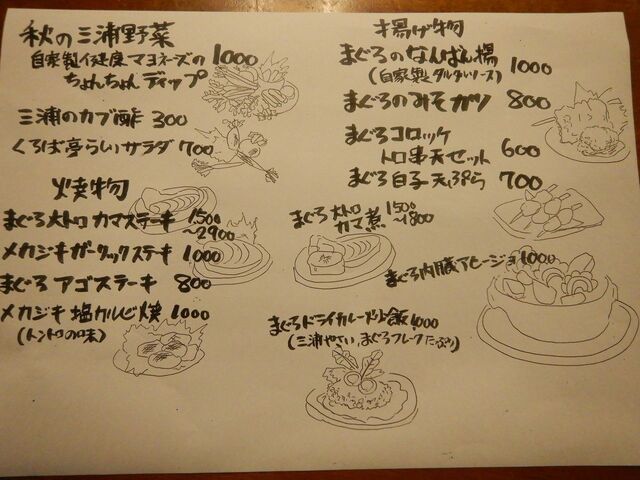 秋の三浦野菜
自家製健康マヨネーズの 1000
ちょんちょんディップ
三浦のカブ酢 300
くろば亭らいサラダ 700
焼物
まぐろ大トロカマステーキ 1500
~2900
メカジキガーリックステキ 1000
まぐろアゴステーキ 800
メカジキ塩カルビ焼 1000
(トントロの味)
揚げ物
まぐろのなんばん揚 1000
(自家製タルタルソース)
まぐろのみそカツ 800
まぐろコロッケ
トロ串天セット 600
まぐろ白子天ぷら 700
まぐろ大トロ 1500
カマ煮 ~1800
まぐろ内臓アヒージョ 1000
まぐろドライカレー炒飯 1000
(三浦やさい、まぐろフレークたっぷり)